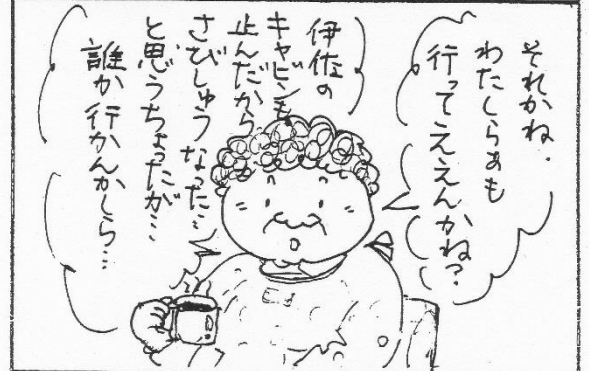 それかね．
わたしらぁも
行ってええんかね？
伊佐の
キャビンも
止んだから
さびしゅうなった…
と思うちょったが…
誰か行かんかしら…